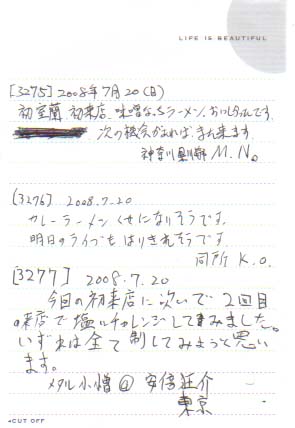 LIFE IS BEAUTIFUL
[3275] 2008年7月20(日)
初室蘭、初来店、味噌なっちラーメン、おいしかったです。
次の機会があれば、また来ます。
神奈川県 M.N。
(3276) 2008.7.20
カレーラーメン くせになりそうです。
明日のライブも はりきれそうです
同所 K.O.
[3277] 2008.7.20
今回の初来店に次いで 2回目
来店で塩にチャレンジしてみました。
いずれは全て制してみようと思い
ます。
メタル小僧@安倍狂介
東京
◂CUT OFF